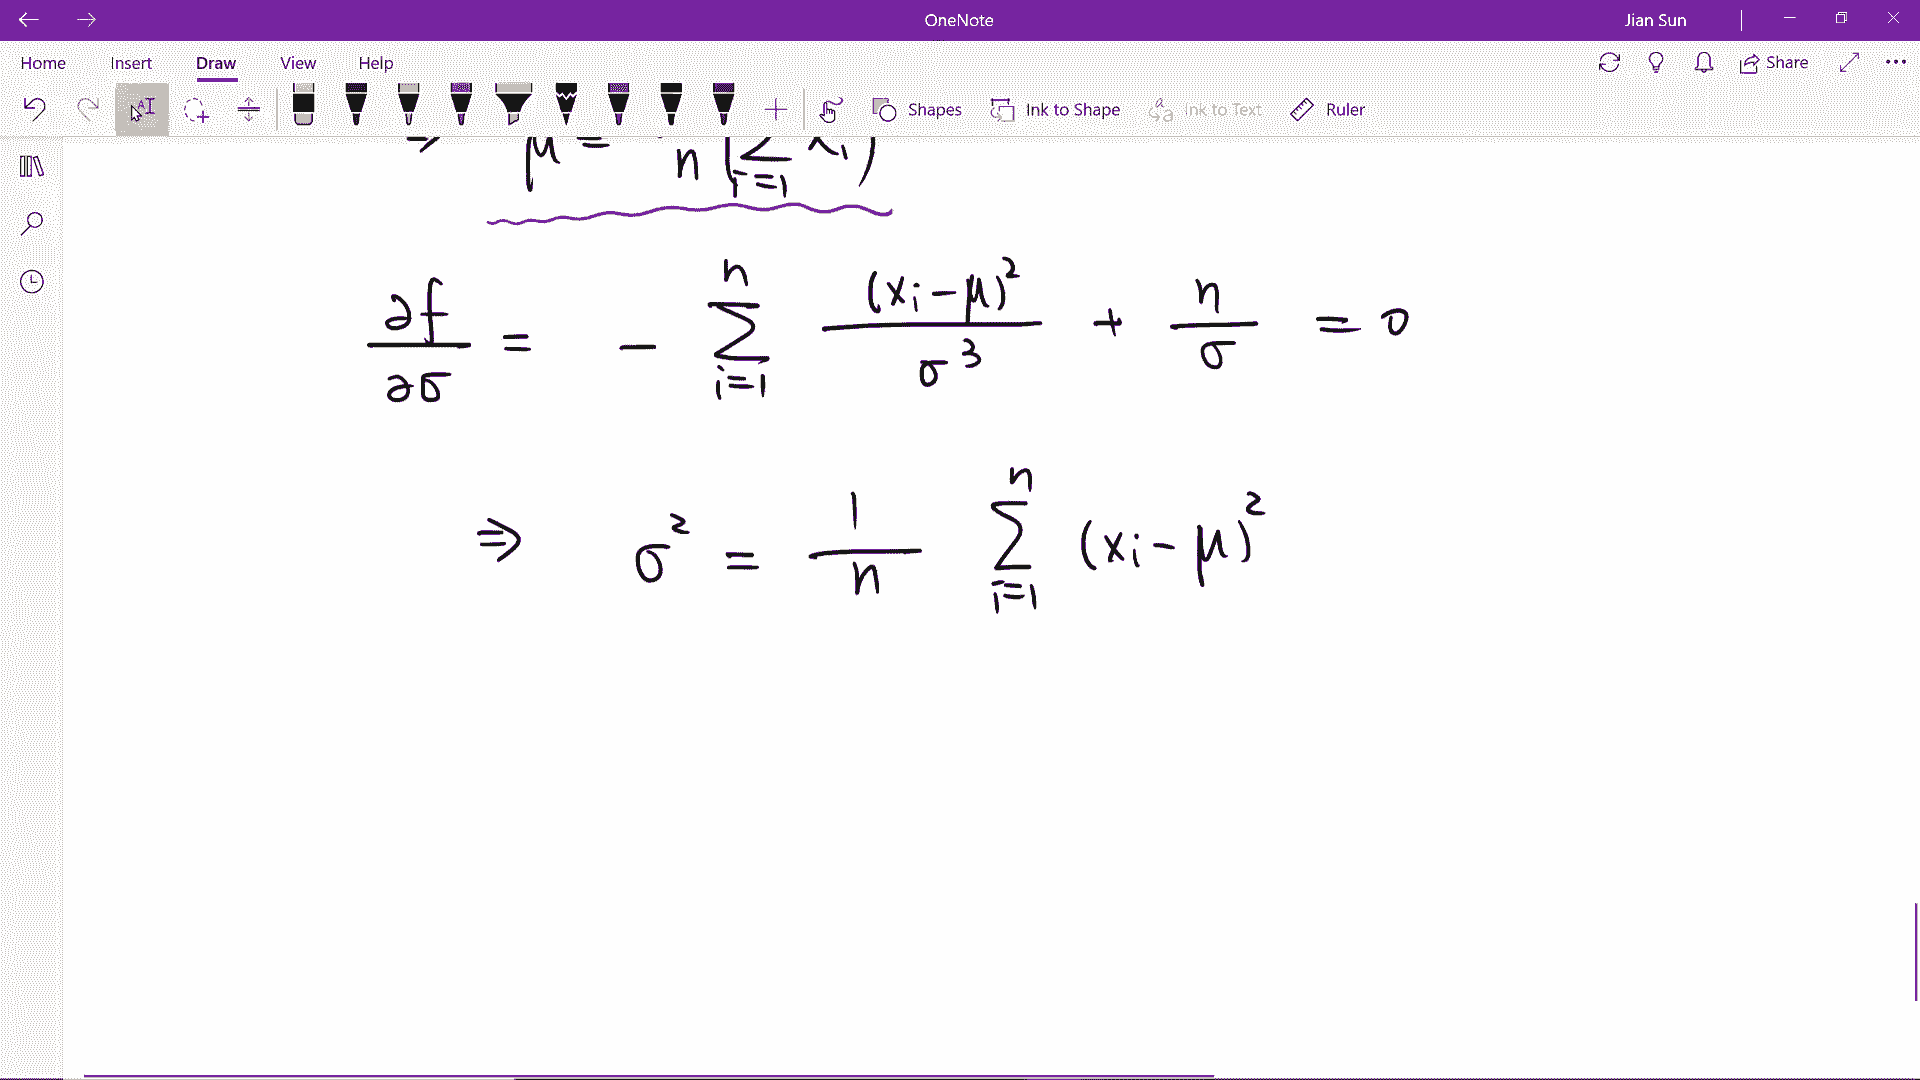 OneNote
Jian Sun
Home Insert Draw View Help
Share
Shapes Ink to Shape Ink to Text Ruler
⇒ μ = 1/n (∑_{i=1} x_i)
∂f/∂σ = - ∑_{i=1}^{n} (x_i - μ)^2/σ^3 + n/σ = 0
⇒ σ^2 = 1/n ∑_{i=1}^{n} (x_i - μ)^2